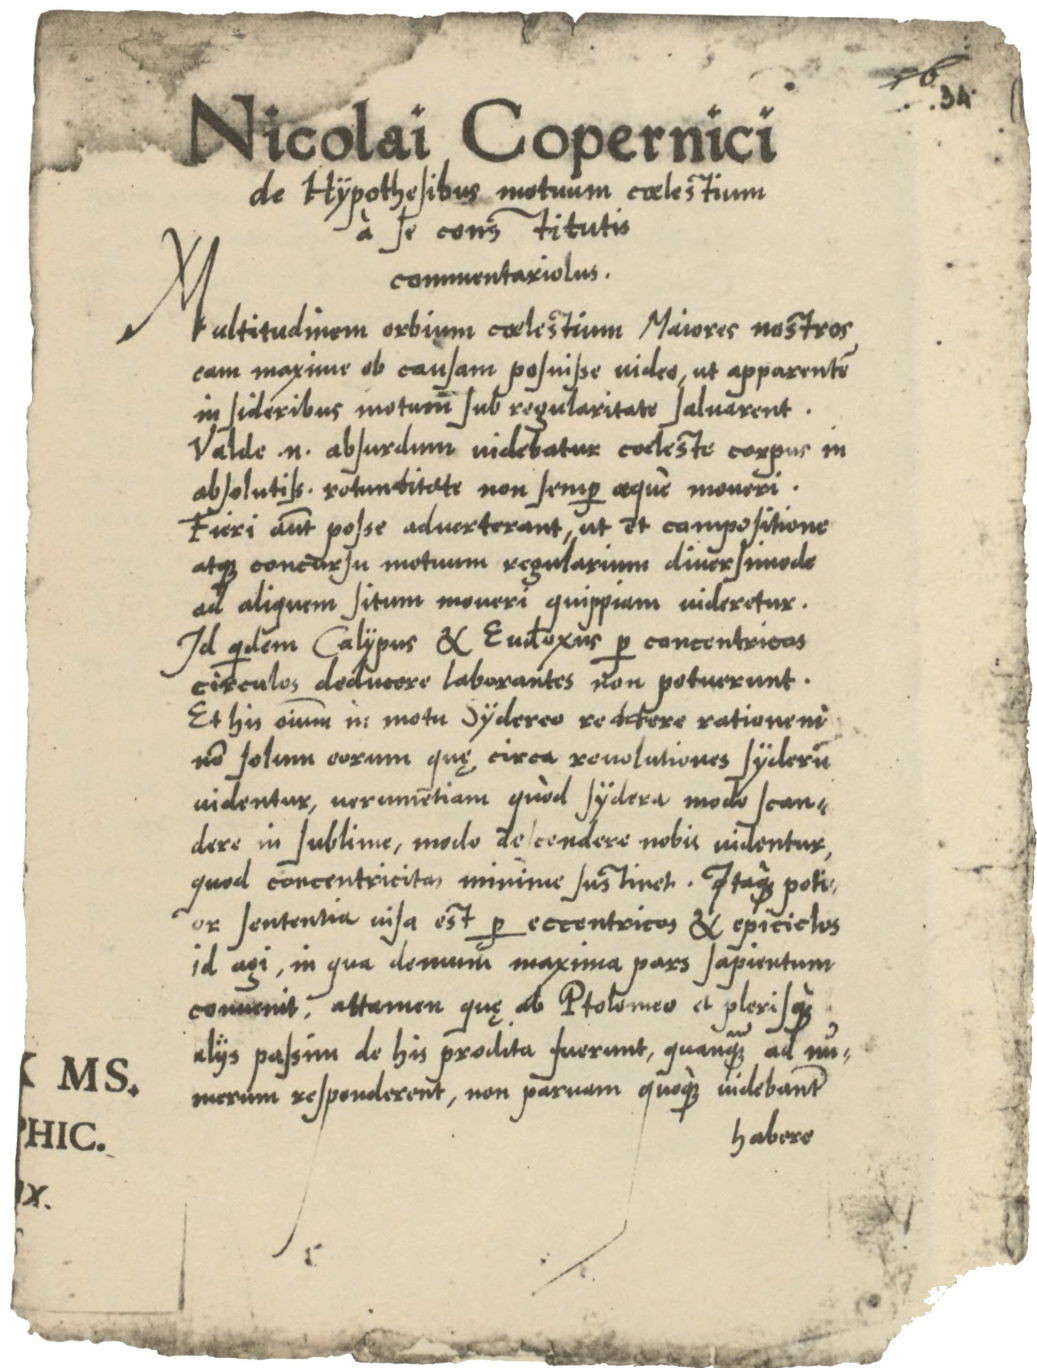 .34.
Nicolai Copernici
de Hÿpothesibus motuum cœlestium
à se constitutis
commentariolus.
Multitudinem orbium cœlestium Maiores nostros
eam maxime ob causam posuisse uideo, ut apparentē
in sideribus motum̄ sub regularitate saluarent.
Valde .n. absurdum uidebatur cœleste corpus in
absolutiss. rotunditate non semꝑ æque moueri.
Fieri aūt posse aduerterant, ut et compositione
atqꝫ concursu motuum regularium diuersimode
ad aliquem situm moueri quippiam uideretur.
Id qdem Calÿpus & Eudoxus ꝑ concentricos
circulos deducere laborantes non potuerunt.
Et his oīum in motu Sÿdereo reddere rationem
nō solum eorum quę circa reuolutiones sÿderū
uidentur, uerumetiam quòd sÿdera modo scan-
dere in sublime, modo descendere nobis uidentur,
quod concentricitas minime sustinet. Itaqꝫ poti-
or sententia uisa est ꝑ eccentricos & epiciclos
id agi, in qua demum maxima pars sapientum
conuenit, attamen quę ab Ptolomeo et plerisqꝫ
alijs passim de his prodita fuerunt, quanqꝫ ad nu-
merum responderent, non paruam quoqꝫ uidebant᷑
habere
MS.
PHIC.
IX.